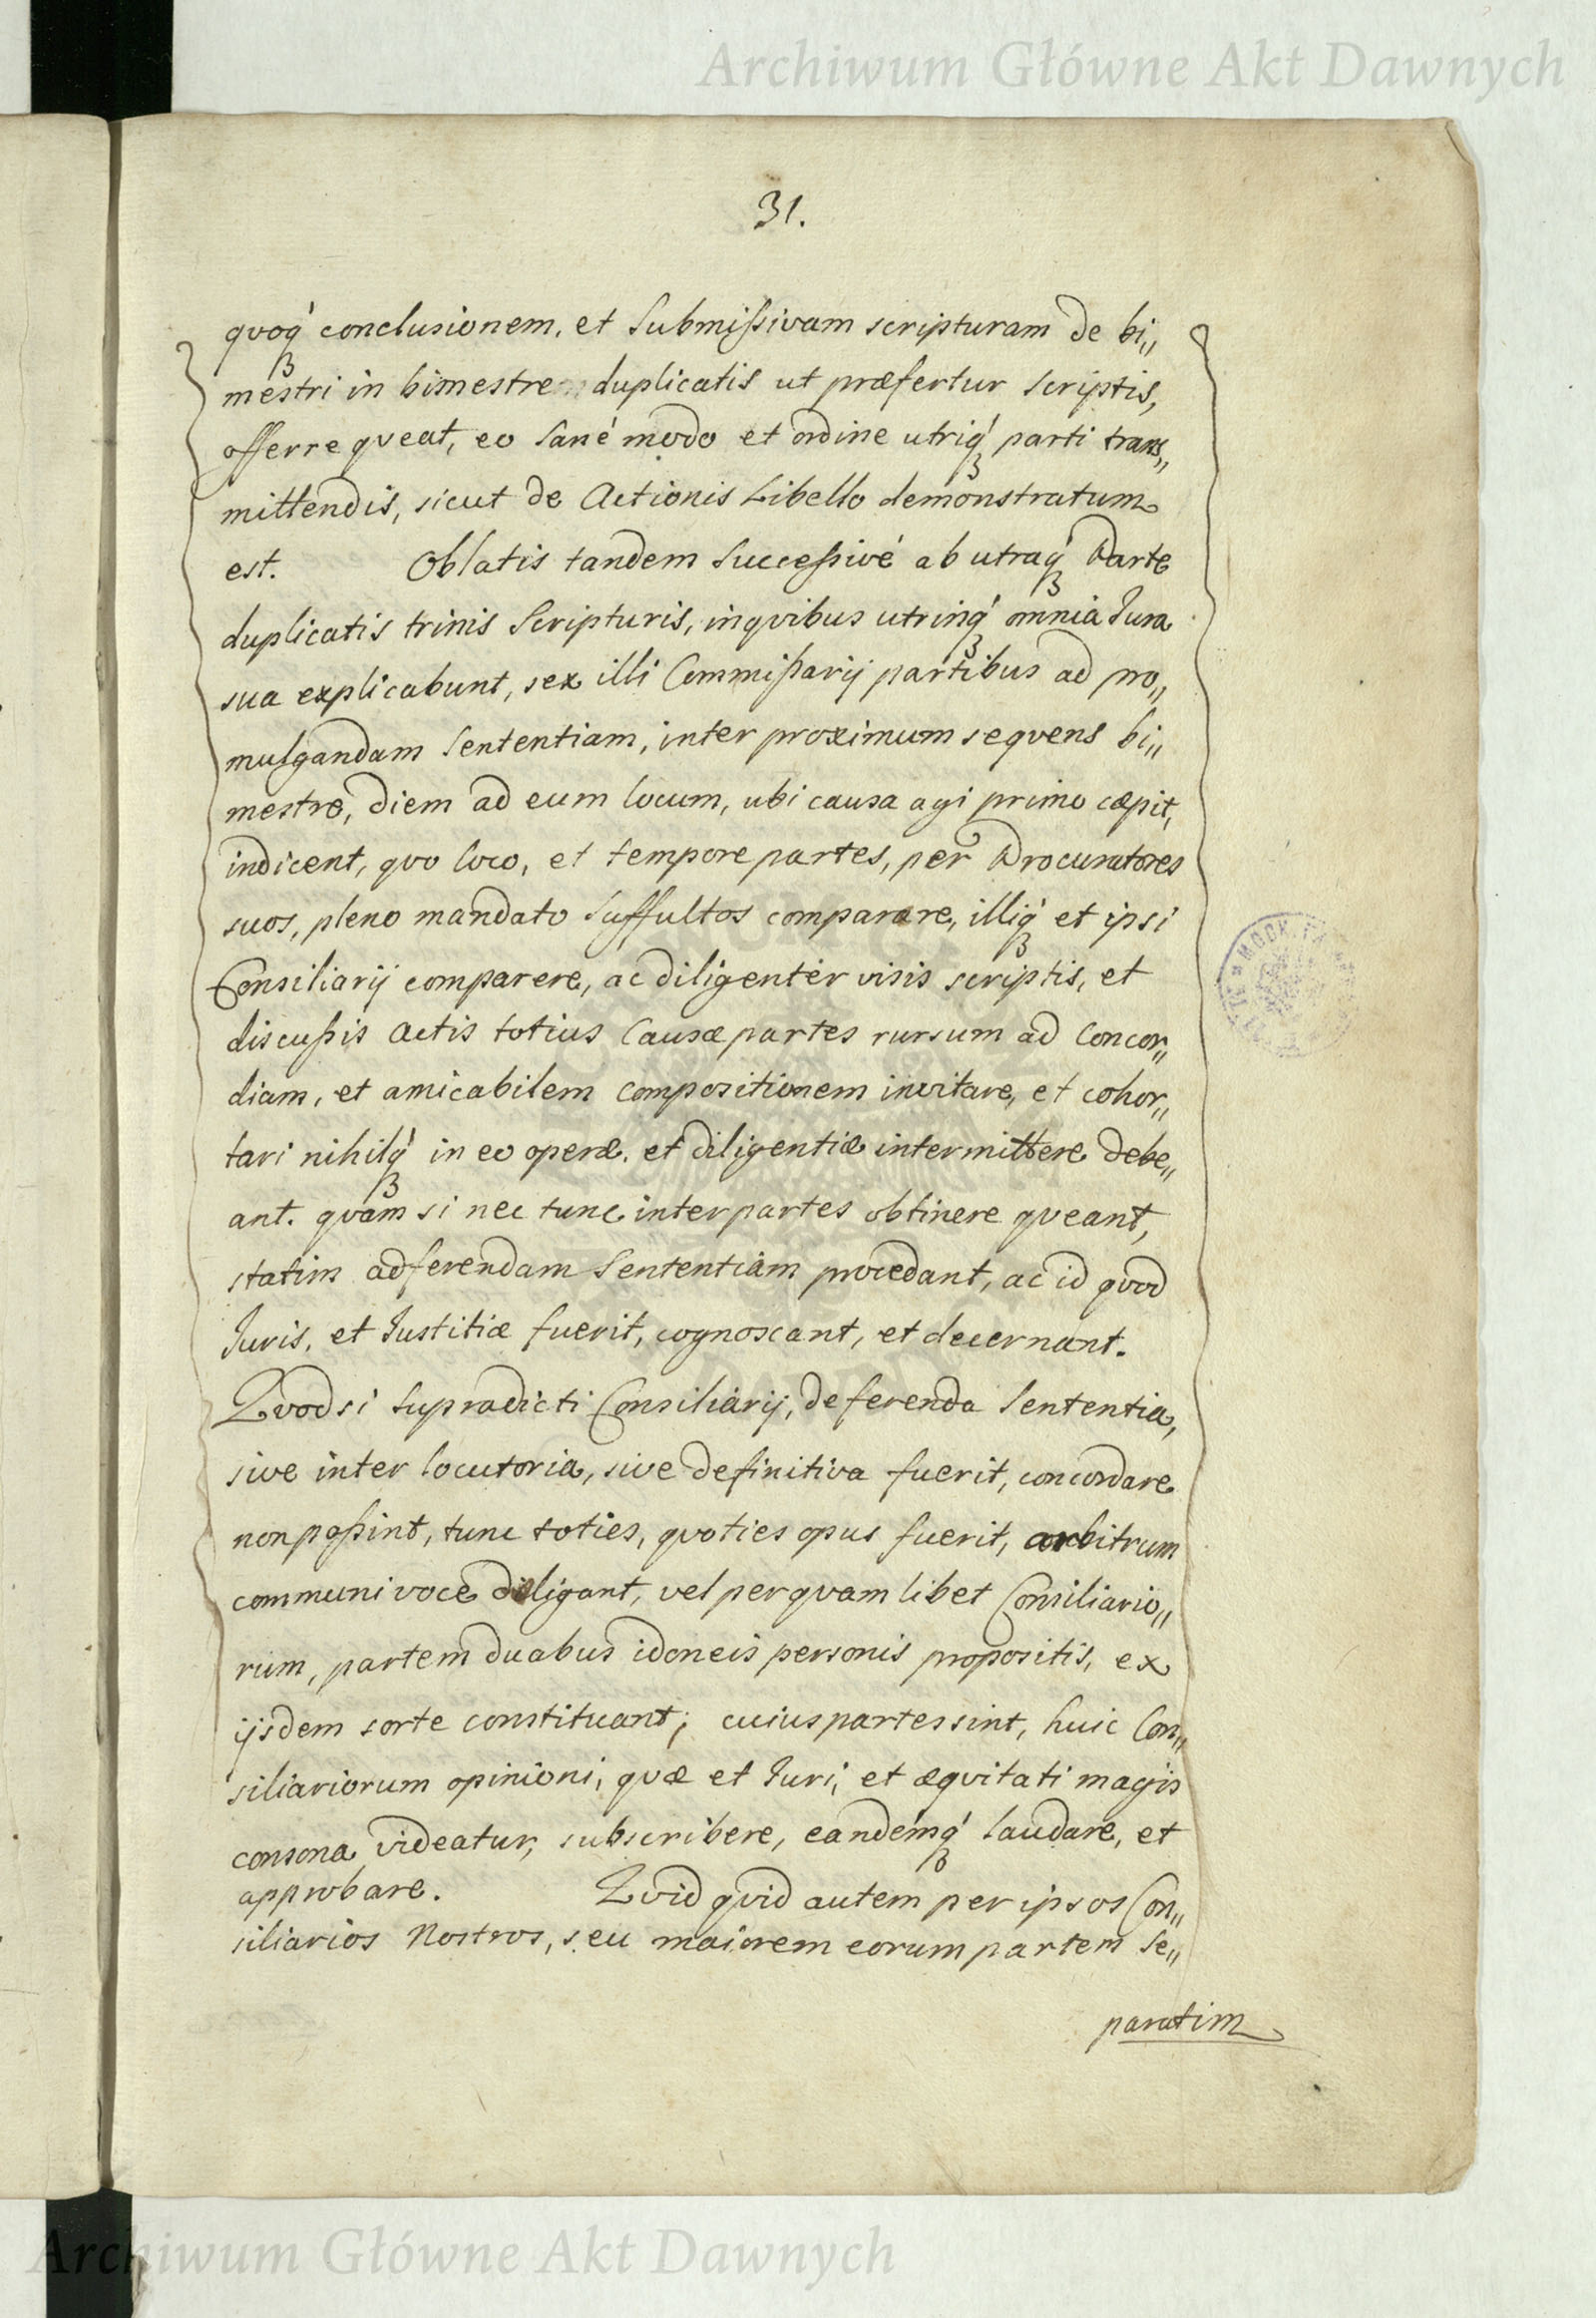 Archiwum Główne Akt Dawnych
31.
quoq́ꝫ conclusionem, et Submißivam scripturam de bi„
mestri in bimestre duplicatis ut præfertur Scriptis,
offerre queat, eo Sané modo et ordine utriq́ꝫ parti trans„
mittendis, sicut de Actionis Libello demonstratum
est. Oblatis tandem Succeßivé ab utraq́ꝫ Parte
duplicatis trinis Scripturis, in quibus utrinq́ꝫ omnia Jura
sua explicabunt, sex illi Commißarij partibus ad pro„
mulgandam Sententiam, inter proximum sequens bi„
mestre, diem ad eum locum, ubi causa agi primo cæpit,
indicent, quo loco, et tempore partes, per Procuratores
suos, pleno mandato Suffultos comparare, illiq́ꝫ et ipsi
Consiliarij comparere, ac diligentér visis scriptis, et
discußis Actis totius Causæ partes rursum ad Concor„
diam, et amicabilem Compositionem invitare, et cohor„
tari nihilq́ꝫ in eo operæ, et diligentiæ intermittere debe„
ant. quam si nec tunc inter partes obtinere queant,
statim ad ferendam Sententiam procedant, ac id quod
Juris, et Justitiæ fuerit, cognoscant, et decernant.
Quod si Supradicti Consiliarij, de ferenda Sententia,
sive inter locutoria, sive definitiva fuerit, concordare
non poßint, tunc toties, quoties opus fuerit, arbitrum
communi voce diligant, vel per quam libet Consiliario„
rum, partem duabus idoneis personis propositis, ex
ijsdem sorte constituant; cuius partes sint, huic Con„
siliariorum opinioni, quæ et Juri, et æquitati magis
consona videatur, subscribere, eandemq́ꝫ laudare, et
approbare. Quid quid autem per ipsos Con„
siliarios Nostros, seu maiorem eorum partem Se„
paratim
Archiwum Główne Akt Dawnych